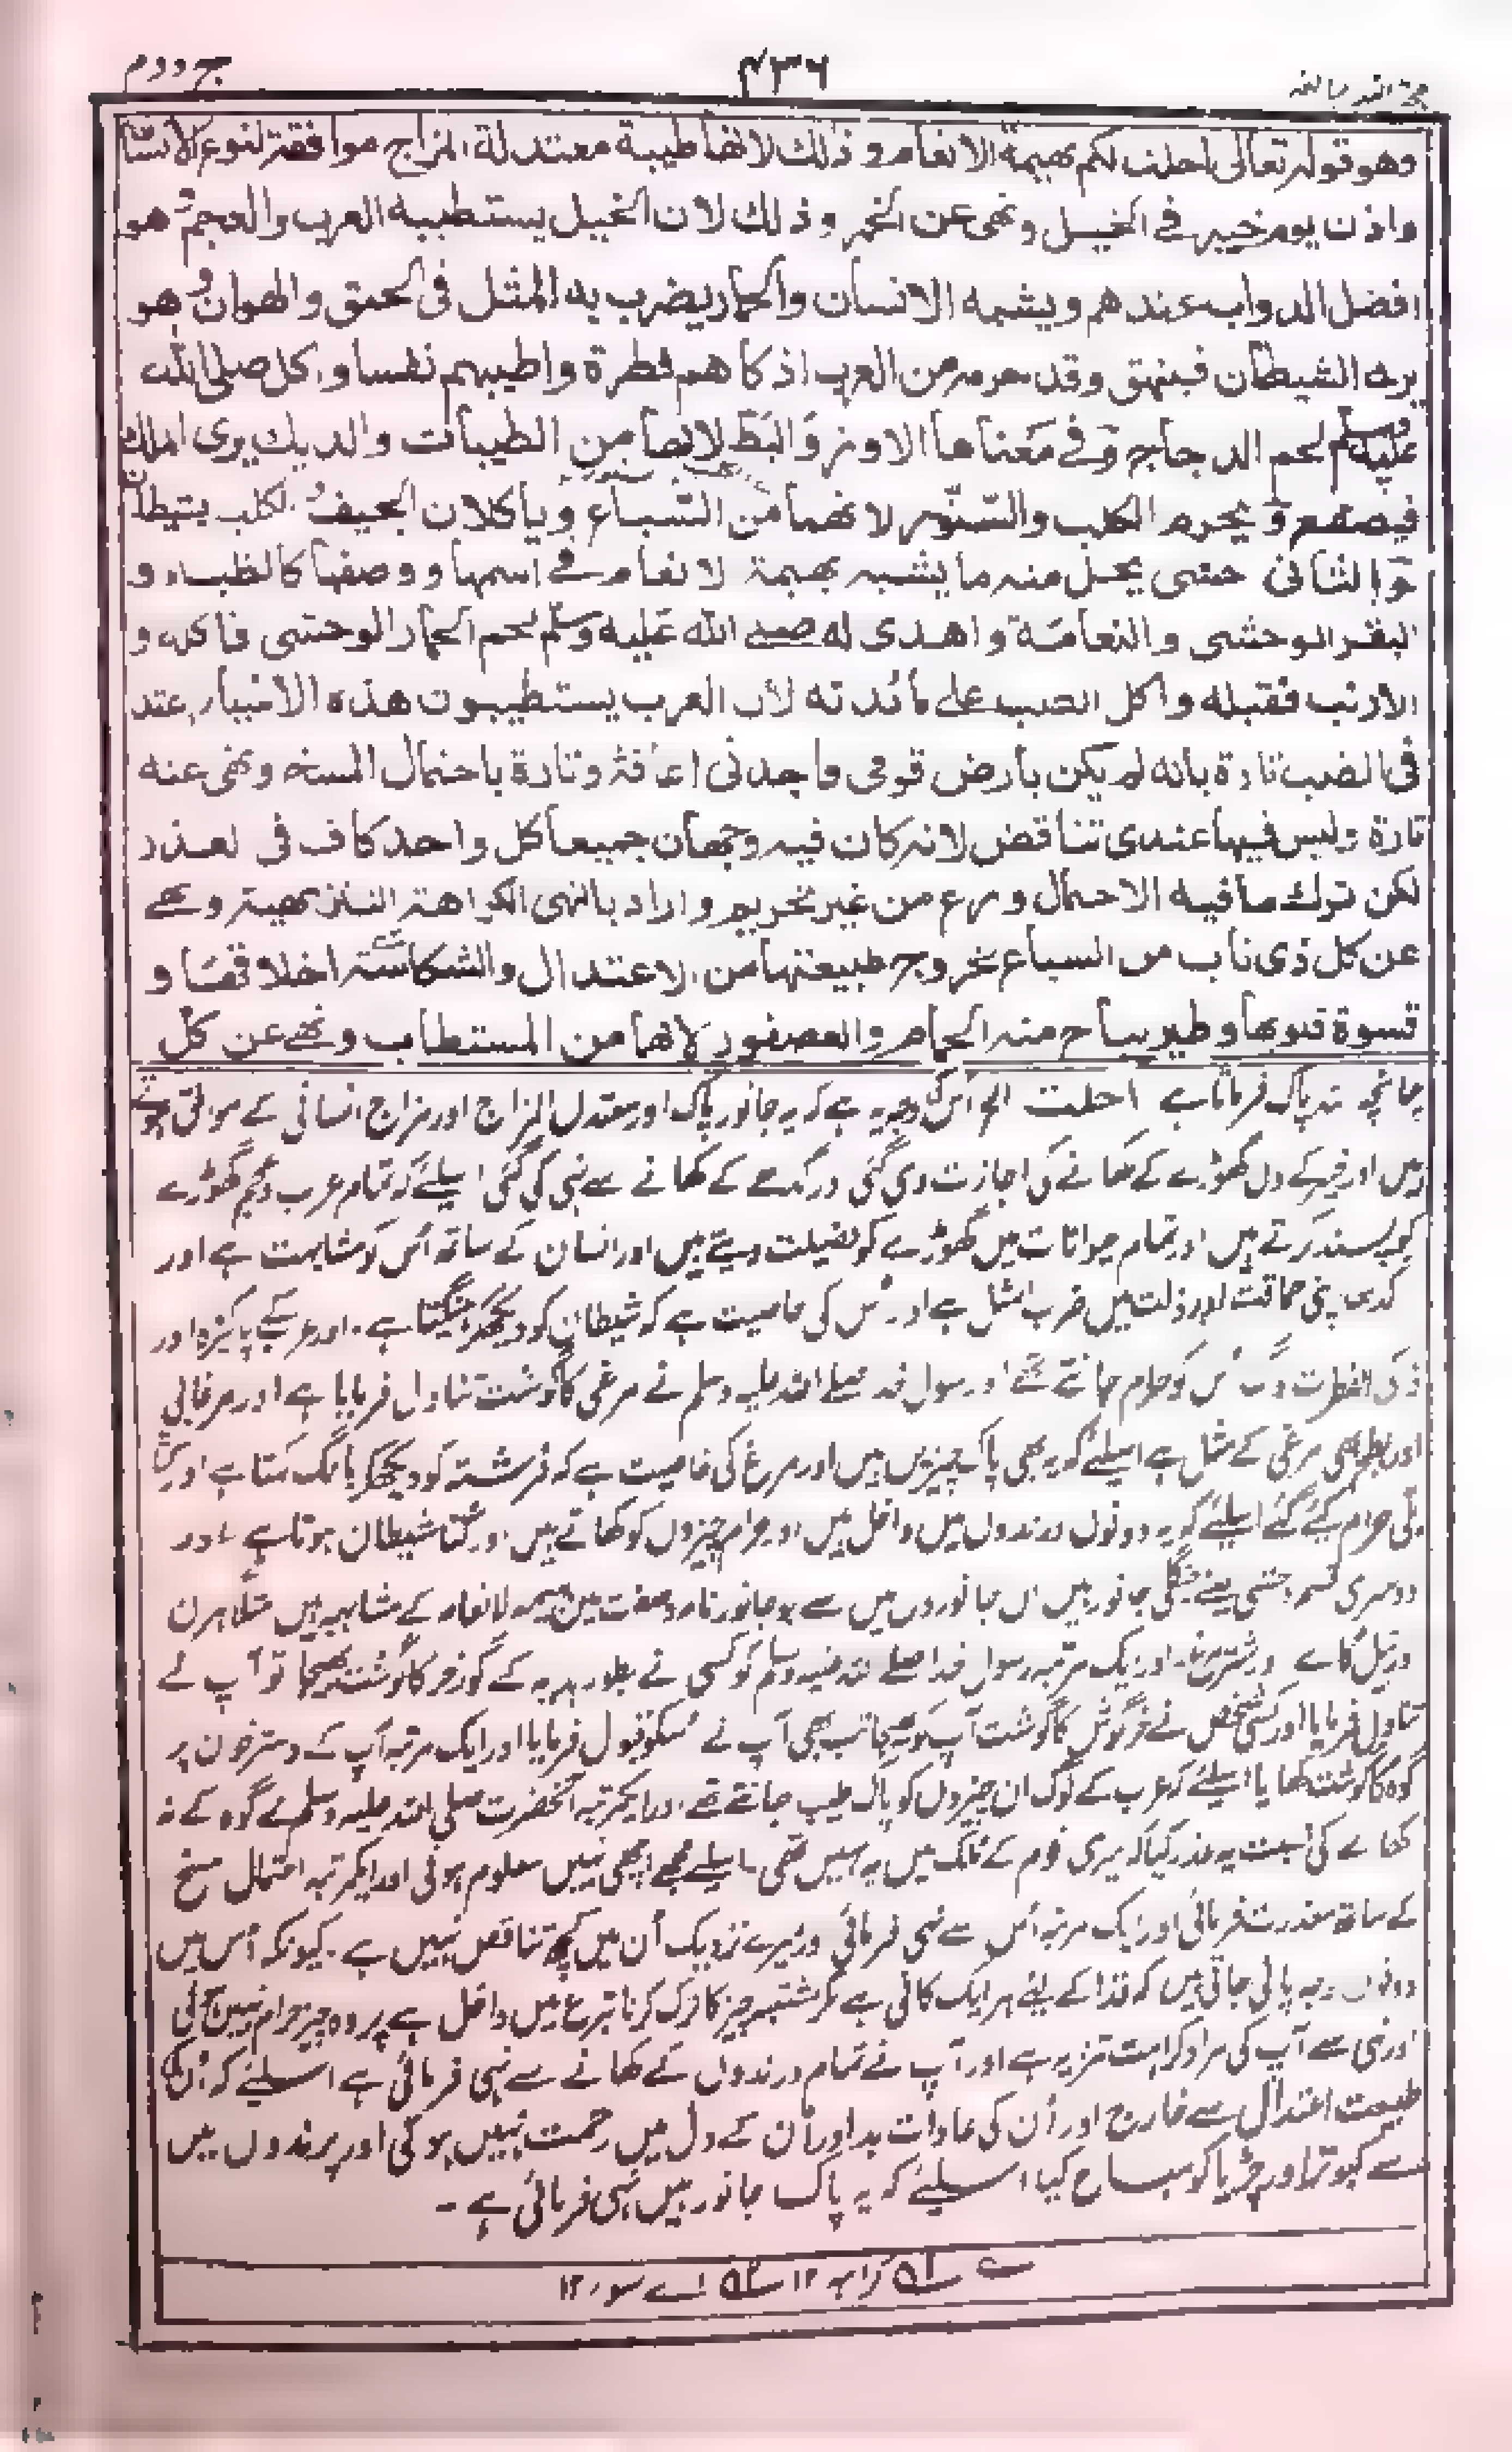 حجۃ اللہ البالغہ
۴۳۶
ج دوم
وهو قوله تعالى احلت لكم بهيمة الانعام و ذلك لانها طيبة معتدلة المزاج موافقة لنوع الانسان
واذن يوم خيبر فى الخيل ونهى عن الحمر و ذلك لان الخيل يستطيبه العرب والعجم و هو
افضل الدواب عندهم ويشبه الانسان والحمار يضرب به المثل فى الحمق والهوان و هو
يرى الشيطان فينهق وقد حرمه من العرب اذكاهم فطرة واطيبهم نفسا و اكل صلى الله
عليه وسلم لحم الدجاج و فى معناها الاوز والبط لانها من الطيبات والديك يرى الملك
فيصقع و يحرم الكلب والسنور لانهما من السباع و ياكلان الجيف و الكلب شيطان
و الثانى وحشى يحل منه ما يشبه بهيمة الانعام فى اسمها و وصفها كالظباء و
البقر الوحشى والنعامة و اهدى له صلى الله عليه وسلم لحم الحمار الوحشى فاكله و
الارنب فقبله واكل الضب على مائدته لان العرب يستطيبون هذه الاشياء و اعتذر
فى الضب تارة بانه لم يكن بارض قومى فاجدنى اعافه و تارة باحتمال المسخ و نهى عنه
تارة وليس فيها عندى تناقض لانه كان فيه وجهان جميعا كل واحد كاف فى العذر
لكن ترك ما فيه الاحتمال ورع من غير تحريم و اراد بالنهى الكراهة التنزيهية و نهى
عن كل ذى ناب من السباع لخروج طبيعتها من الاعتدال والشكاسة اخلاقها و
قسوة قلوبها و طير يباح منه الحمام والعصفور لانها من المستطاب و نهى عن كل
چنانچہ اللہ پاک فرماتا ہے احلت الخ اس کی وجہ یہ ہے کہ یہ جانور پاک اور معتدل المزاج اور مزاج انسانی کے موافق ہوتے
ہیں اور خیبر کے دن گھوڑے کے کھانے کی اجازت دی گئی اور گدھے کے کھانے سے نہی کی گئی اسلئے کہ تمام عرب و عجم گھوڑے
کو پسند کرتے ہیں اور تمام حیوانات میں گھوڑے کو فضیلت دیتے ہیں اور انسان کے ساتھ اُس کو مشابہت ہے اور
گدھا اپنی حماقت اور ذلت میں ضرب المثل ہے اور اُس کی خاصیت ہے کہ شیطان کو دیکھکر ہینگتا ہے۔ اور عرب کے پاکیزہ اور
ذکی الفطرت لوگ اُس کو حرام جانتے تھے اور رسول خدا صلے اللہ علیہ وسلم نے مرغی کا گوشت تناول فرمایا ہے اور مرغابی
اور بط بھی مرغی کے مثل ہے اسلئے کہ یہ بھی پاک چیزیں ہیں اور مرغ کی خاصیت ہے کہ فرشتہ کو دیکھکر بانگ کہتا ہے اور کتا
بلی حرام کئے گئے اسلئے کہ یہ دونوں درندوں میں داخل ہیں اور حرام چیزوں کو کھاتے ہیں اور کتا شیطان ہوتا ہے اور
دوسری قسم وحشی یعنے جنگلی جانور ہیں ان جانوروں میں سے جو جانور نام و صفت میں بہیمۃ الانعام کے مشابہ ہیں مثلاً ہرن
اور نیل گائے اور شتر مرغ۔ اور ایک مرتبہ رسول خدا صلے اللہ علیہ وسلم کو کسی نے بطور ہدیہ کے گورخر کا گوشت بھیجا تو آپ نے
تناول فرمایا اور کسی شخص نے خرگوش کا گوشت آپ کو بھیجا تب بھی آپ نے اُسکو قبول فرمایا اور ایک مرتبہ آپ کے دسترخون پر
گوہ کا گوشت کھایا اسلئے کہ عرب کے لوگ ان چیزوں کو پاک طیب جانتے تھے۔ اور ایکمرتبہ آنحضرت صلی اللہ علیہ وسلم نے گوہ کے نہ
کھانے کی نسبت یہ عذر کیا کہ میری قوم کے ملک میں یہ نہیں تھی۔ اسلئے مجھے اچھی نہیں معلوم ہوتی اور ایکمرتبہ احتمال مسخ
کے ساتھ معذرت فرمائی اور ایک مرتبہ اُس سے نہی فرمائی اور میرے نزدیک اُن میں کچھ تناقص نہیں ہے۔ کیونکہ اُس میں
دونوں وجہ پائی جاتی ہیں کہ عذر کے لئے ہر ایک کافی ہے مگر مشتبہ چیز کا ترک کرنا تبرع میں داخل ہے پر وہ چیز حرام نہیں ہوئی
اور نہی سے آپ کی مراد کراہت تنزیہ ہے اور آپ نے تمام درندوں کے کھانے سے نہی فرمائی ہے اسلئے کہ اُن کی
طبیعت اعتدال سے خارج اور اُن کی عادات بد اور اُن کے دل میں رحمت نہیں ہوتی اور پرندوں میں
سے کبوتر اور چڑیا کو مباح کیا اسلئے کہ یہ پاک جانور ہیں نہی فرمائی ہے۔